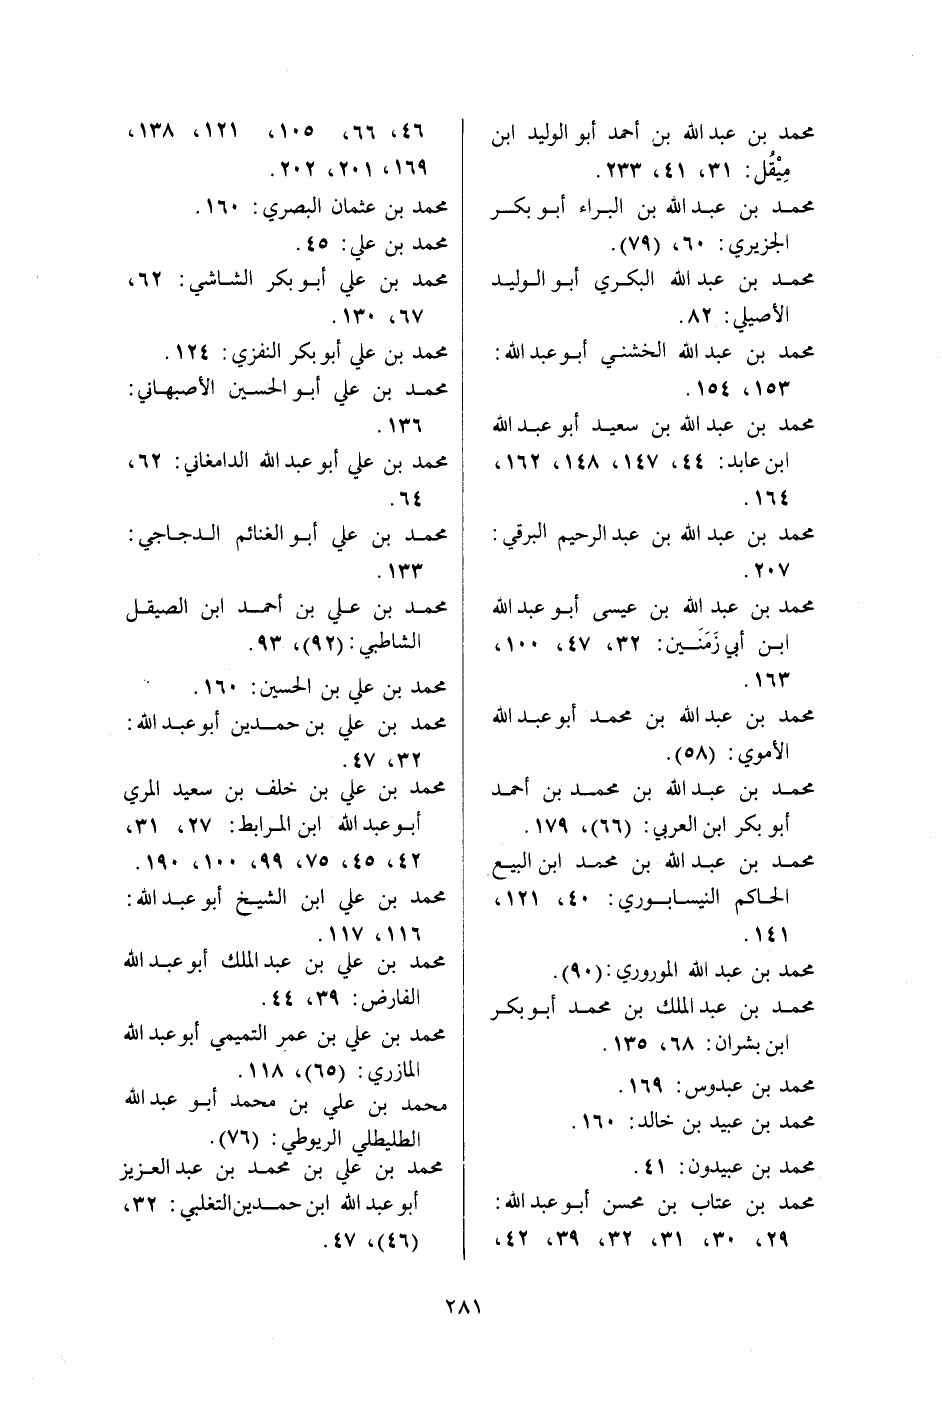 محمد بن عبد الله بن أحمد أبو الوليد ابن
مِيْقُل: ٣١، ٤١، ٢٣٣.
محمد بن عبد الله بن البراء أبو بكر
الجزيري: ٦٠، (٧٩).
محمد بن عبد الله البكري أبو الوليد
الأصيلي: ٨٢.
محمد بن عبد الله الخشني أبو عبد الله:
١٥٣، ١٥٤.
محمد بن عبد الله بن سعيد أبو عبد الله
ابن عابد: ٤٤، ١٤٧، ١٤٨، ١٦٢،
١٦٤.
محمد بن عبد الله بن عبد الرحيم البرقي:
٢٠٧.
محمد بن عبد الله بن عيسى أبو عبد الله
ابن أبي زَمَنَين: ٣٢، ٤٧، ١٠٠،
١٦٣.
محمد بن عبد الله بن محمد أبو عبد الله
الأموي: (٥٨).
محمد بن عبد الله بن محمد بن أحمد
أبو بكر ابن العربي: (٦٦)، ١٧٩.
محمد بن عبد الله بن محمد ابن البيع
الحاكم النيسابوري: ٤٠، ١٢١،
١٤١.
محمد بن عبد الله الموروري: (٩٠).
محمد بن عبد الملك بن محمد أبو بكر
ابن بشران: ٦٨، ١٣٥.
محمد بن عبدوس: ١٦٩.
محمد بن عبيد بن خالد: ١٦٠.
محمد بن عبيدون: ٤١.
محمد بن عتاب بن محسن أبو عبد الله:
٢٩، ٣٠، ٣١، ٣٢، ٣٩، ٤٢،
٤٦، ٦٦، ١٠٥، ١٢١، ١٣٨،
١٦٩، ٢٠١، ٢٠٢.
محمد بن عثمان البصري: ١٦٠.
محمد بن علي: ٤٥.
محمد بن علي أبو بكر الشاشي: ٦٢،
٦٧، ١٣٠.
محمد بن علي أبو بكر النفزي: ١٢٤.
محمد بن علي أبو الحسين الأصبهاني:
١٣٦.
محمد بن علي أبو عبد الله الدامغاني: ٦٢،
٦٤.
محمد بن علي أبو الغنائم الدجاجي:
١٣٣.
محمد بن علي بن أحمد ابن الصيقل
الشاطبي: (٩٢)، ٩٣.
محمد بن علي بن الحسين: ١٦٠.
محمد بن علي بن حمدين أبو عبد الله:
٣٢، ٤٧.
محمد بن علي بن خلف بن سعيد المري
أبو عبد الله ابن المرابط: ٢٧، ٣١،
٤٢، ٤٥، ٧٥، ٩٩، ١٠٠، ١٩٠.
محمد بن علي ابن الشيخ أبو عبد الله:
١١٦، ١١٧.
محمد بن علي بن عبد الملك أبو عبد الله
الفارض: ٣٩، ٤٤.
محمد بن علي بن عمر التميمي أبو عبد الله
المازري: (٦٥)، ١١٨.
محمد بن علي بن محمد أبو عبد الله
الطليطلي الريوطي: (٧٦).
محمد بن علي بن محمد بن عبد العزيز
أبو عبد الله ابن حمدين التغلبي: ٣٢،
(٤٦)، ٤٧.
٢٨١